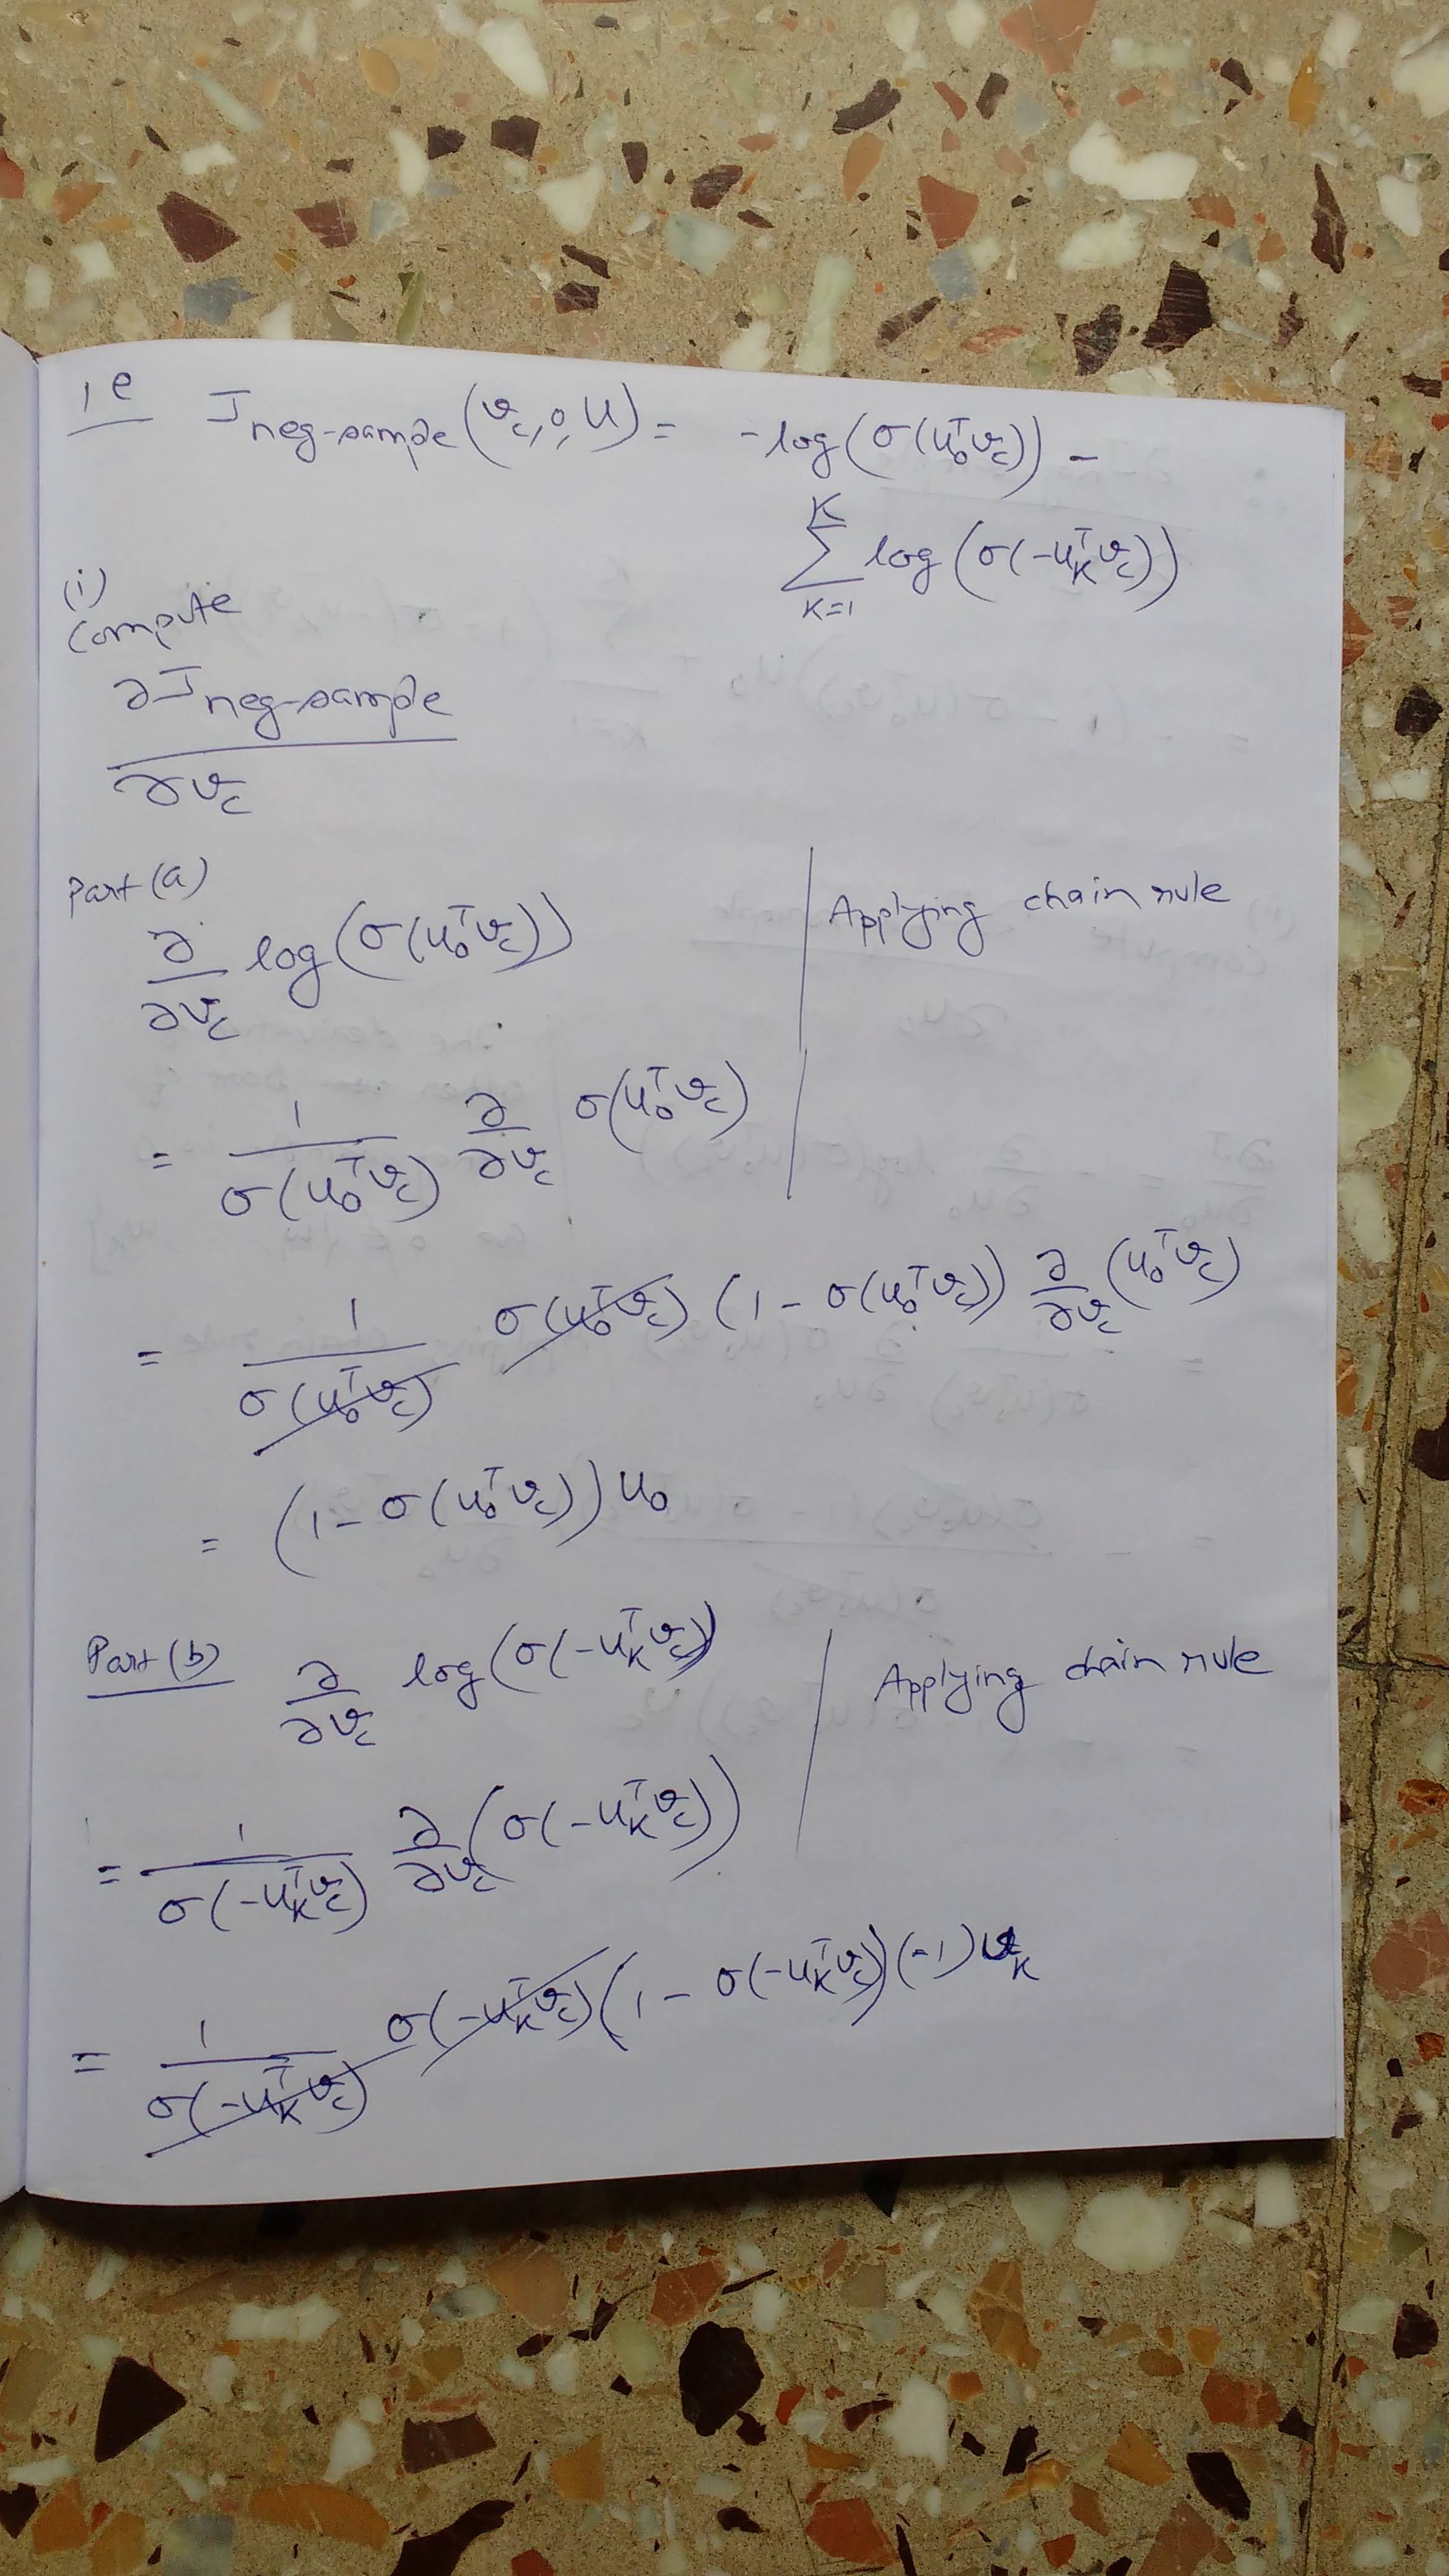 1e J_neg-sample (v_c, o, U) = -log(σ(u_o^T v_c)) -
∑_{K=1}^{K} log(σ(-u_K^T v_c))
(i)
Compute
∂J_neg-sample
/ ∂v_c
Part (a)
∂/∂v_c log(σ(u_o^T v_c)) | Applying chain rule
= 1/σ(u_o^T v_c) ∂/∂v_c σ(u_o^T v_c)
= 1/σ(u_o^T v_c) σ(u_o^T v_c) (1 - σ(u_o^T v_c)) ∂/∂v_c (u_o^T v_c)
= (1 - σ(u_o^T v_c)) u_o
Part (b) ∂/∂v_c log(σ(-u_K^T v_c)) | Applying chain rule
= 1/σ(-u_K^T v_c) ∂/∂v_c (σ(-u_K^T v_c))
= 1/σ(-u_K^T v_c) σ(-u_K^T v_c) (1 - σ(-u_K^T v_c)) (-1) u_K